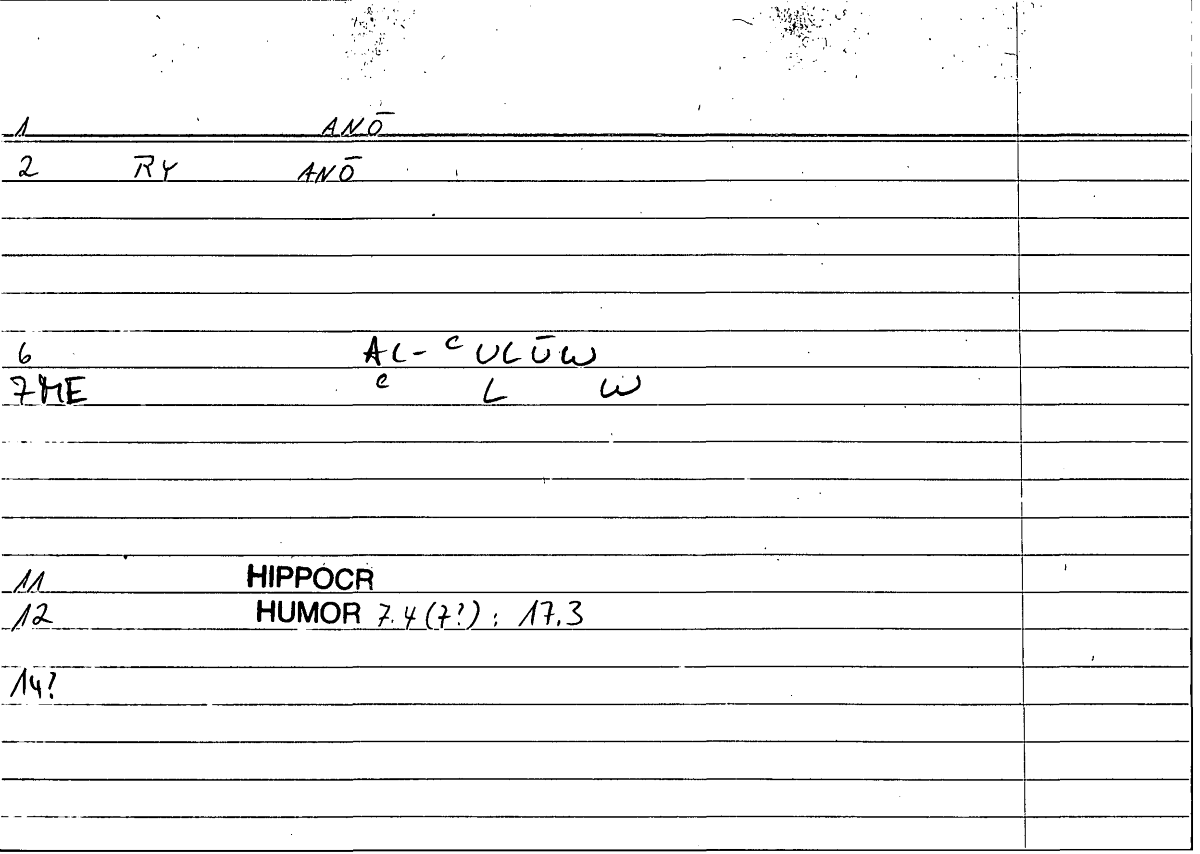 1 ANŌ
2 R̄Y ANŌ
6 AL-ᶜULŪW
7ME ᶜ L W
11 HIPPOCR
12 HUMOR 7.4 (7?) : 17.3
14?